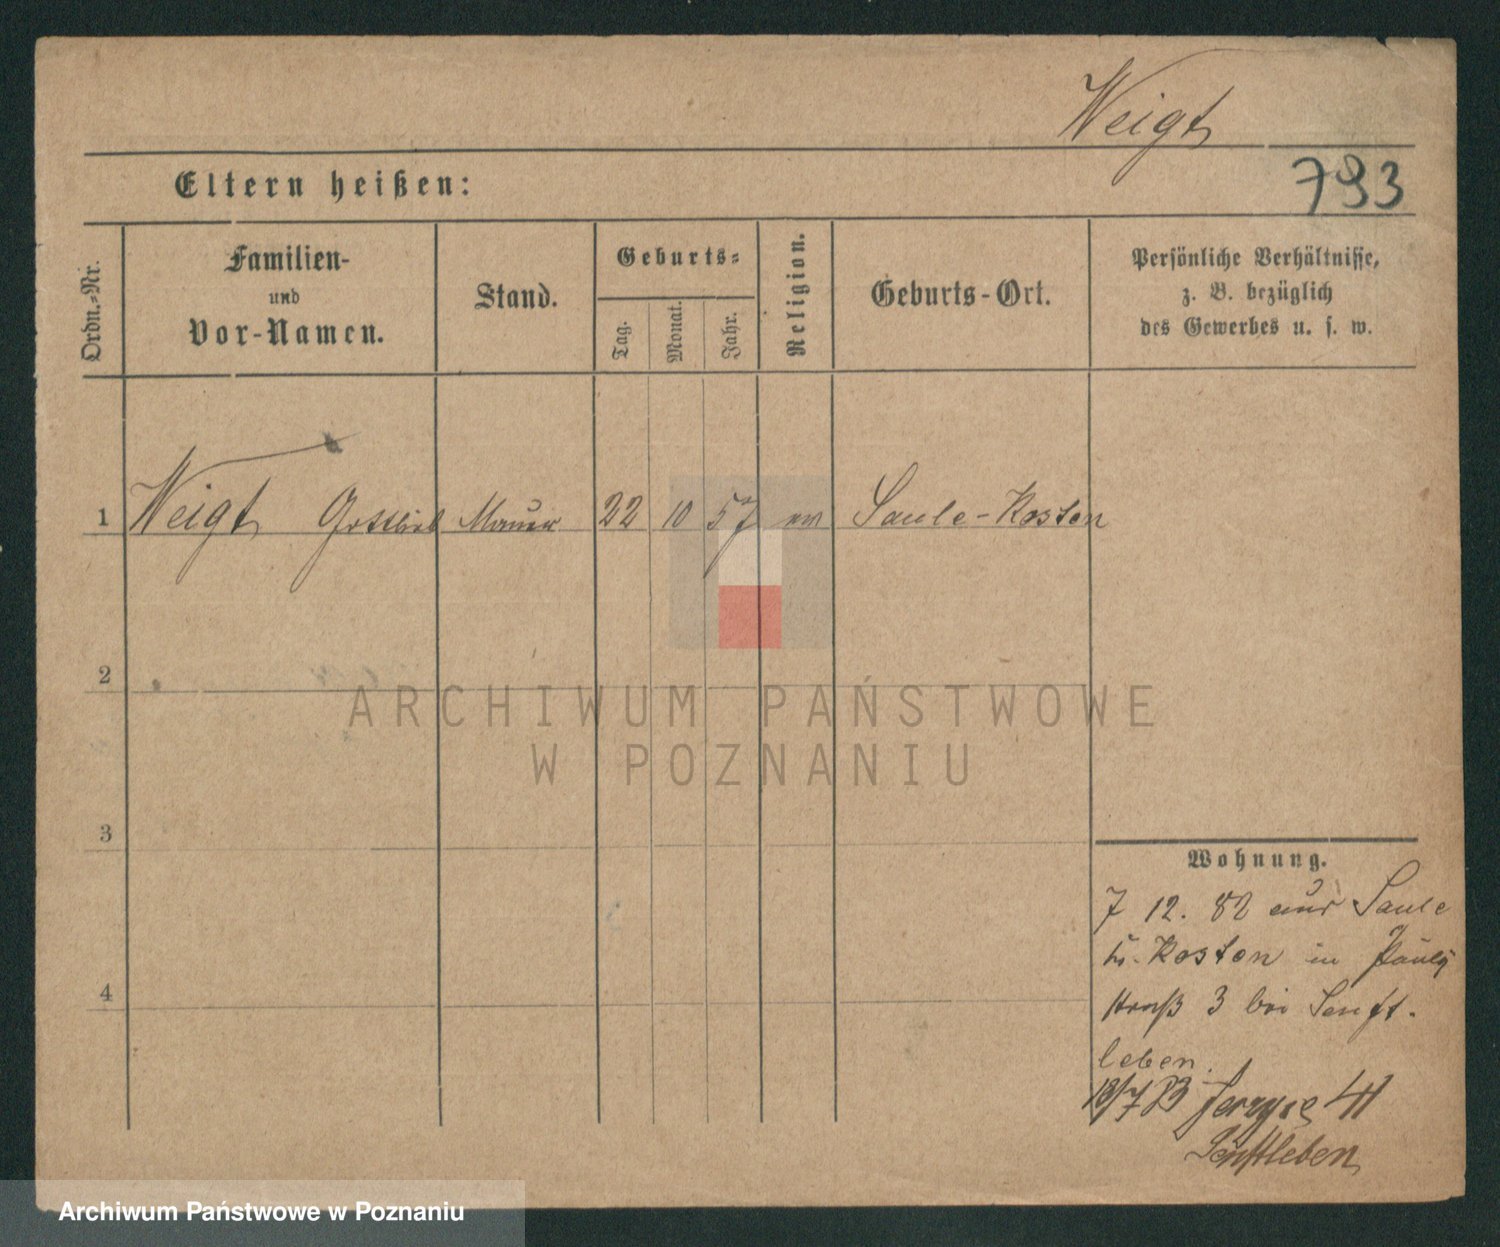 Weigt
793
Eltern heißen:
Ordn.-Nr.
Familien-
und
Vor-Namen.
Stand.
Geburts-
Tag.
Monat.
Jahr.
Religion.
Geburts-Ort.
Persönliche Verhältnisse,
z. B. bezüglich
des Gewerbes u. s. w.
1 Weigt Gottlieb Maurer 22 10 57 ev Saule-Kosten
2
3
4
ARCHIWUM PAŃSTWOWE
W POZNANIU
Wohnung.
7 12. 82 aus Saule
Kosten in Pauly
straß 3 bei Senft.
leben.
18/7 83 41
Senftleben
Archiwum Państwowe w Poznaniu